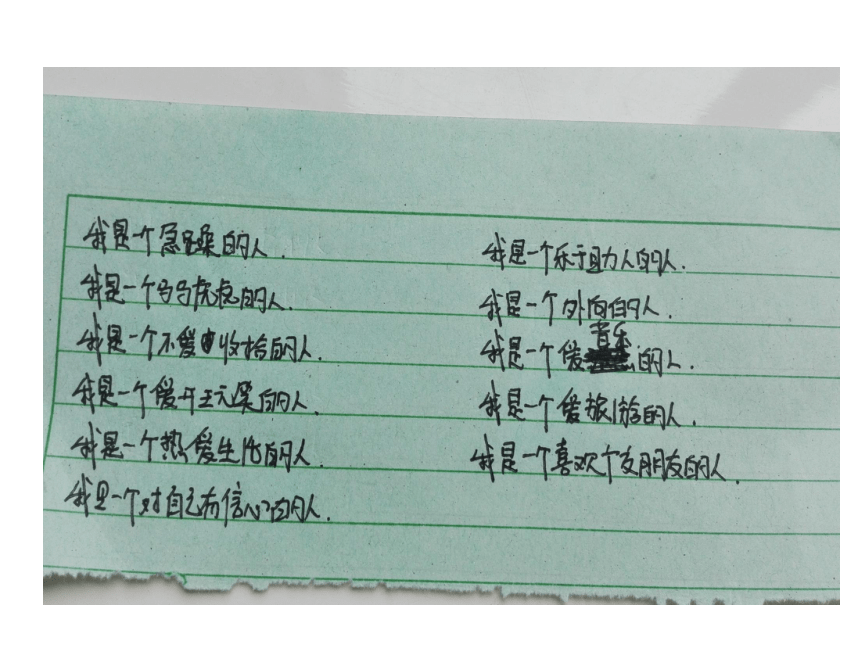 我是一个急躁的人.
我是一个马马虎虎的人.
我是一个不爱收拾的人.
我是一个爱开玩笑的人.
我是一个热爱生活的人.
我是一个对自己有信心的人.
我是一个乐于助人的人.
我是一个外向的人.
我是一个爱音乐的人.
我是一个爱旅游的人.
我是一个喜欢个交朋友的人.